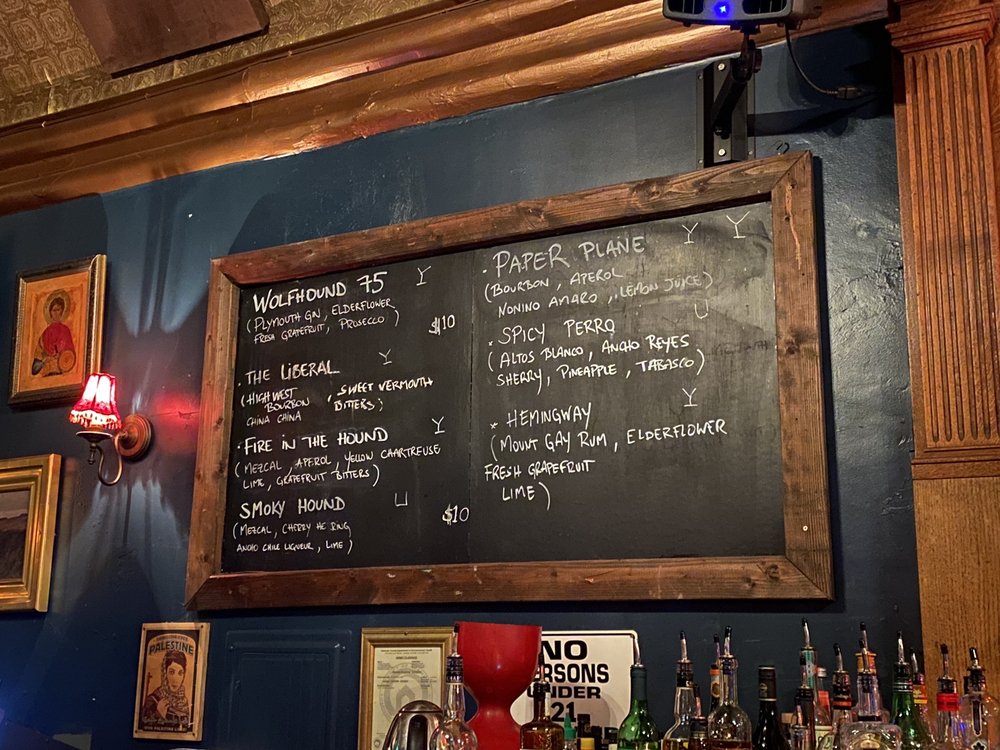 WOLFHOUND 75
(PLYMOUTH GIN, ELDERFLOWER
FRESH GRAPEFRUIT, PROSECCO)
$10
. THE LIBERAL
(HIGH WEST
BOURBON, SWEET VERMOUTH
CHINA CHINA BITTERS;
. FIRE IN THE HOUND
(MEZCAL, APEROL, YELLOW CHARTREUSE
LIME, GRAPEFRUIT BITTERS)
SMOKY HOUND
$10
(MEZCAL, CHERRY HE RING
ANCHO CHILE LIQUEUR, LIME)
. PAPER PLANE
(BOURBON, APEROL
NONINO AMARO, LEMON JUICE)
* SPICY PERRO
(ALTOS BLANCO, ANCHO REYES
SHERRY, PINEAPPLE, TABASCO)
* HEMINGWAY
(MOUNT GAY RUM, ELDERFLOWER
FRESH GRAPEFRUIT
LIME)
PALESTINE
NO
PERSONS
UNDER
21